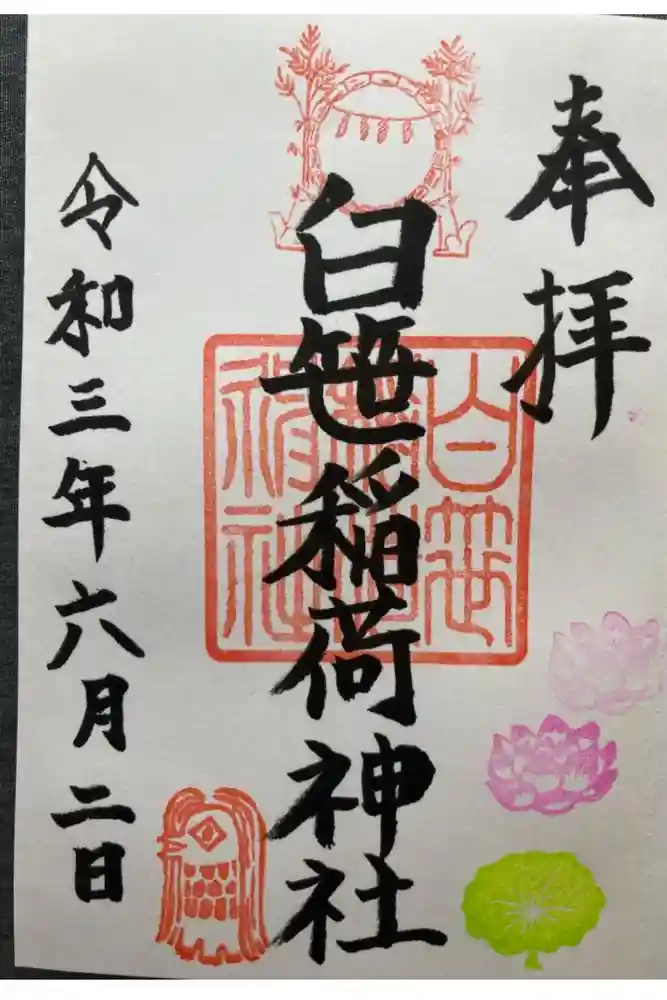 奉拝
白笹稲荷神社
白笹稲荷神社
令和三年六月二日